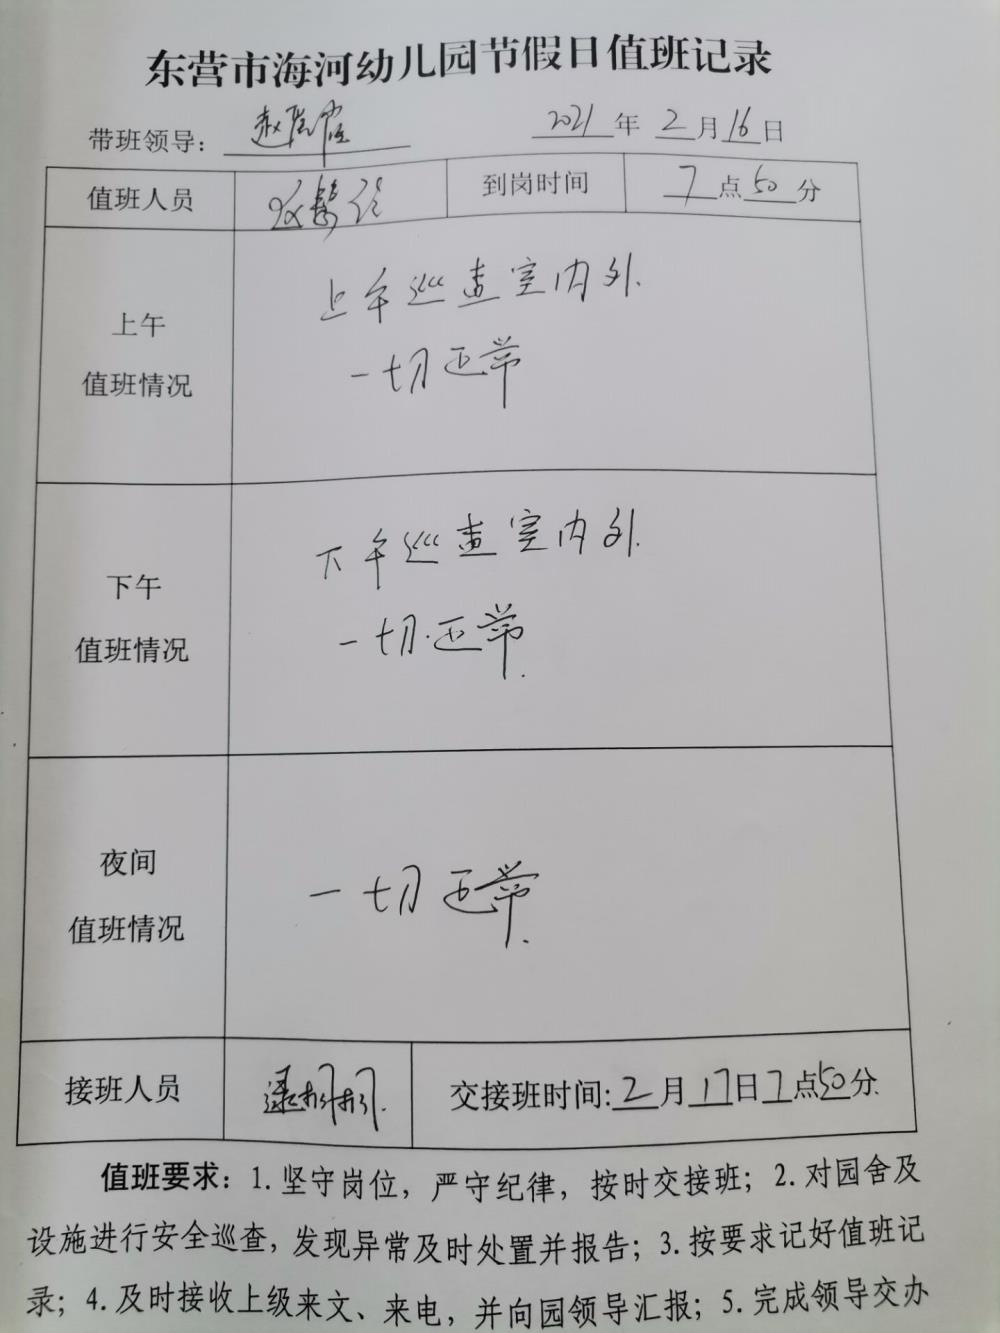 东营市海河幼儿园节假日值班记录
带班领导: 2021年2月16日
值班人员 到岗时间 7点50分
上午巡查室内外.
上午
一切正常
值班情况
下午巡查室内外.
下午
一切正常.
值班情况
夜间
一切正常.
值班情况
接班人员 交接班时间:2月17日7点50分
值班要求: 1. 坚守岗位, 严守纪律, 按时交接班; 2. 对园舍及
设施进行安全巡查, 发现异常及时处置并报告; 3. 按要求记好值班记
录; 4. 及时接收上级来文、来电, 并向园领导汇报; 5. 完成领导交办